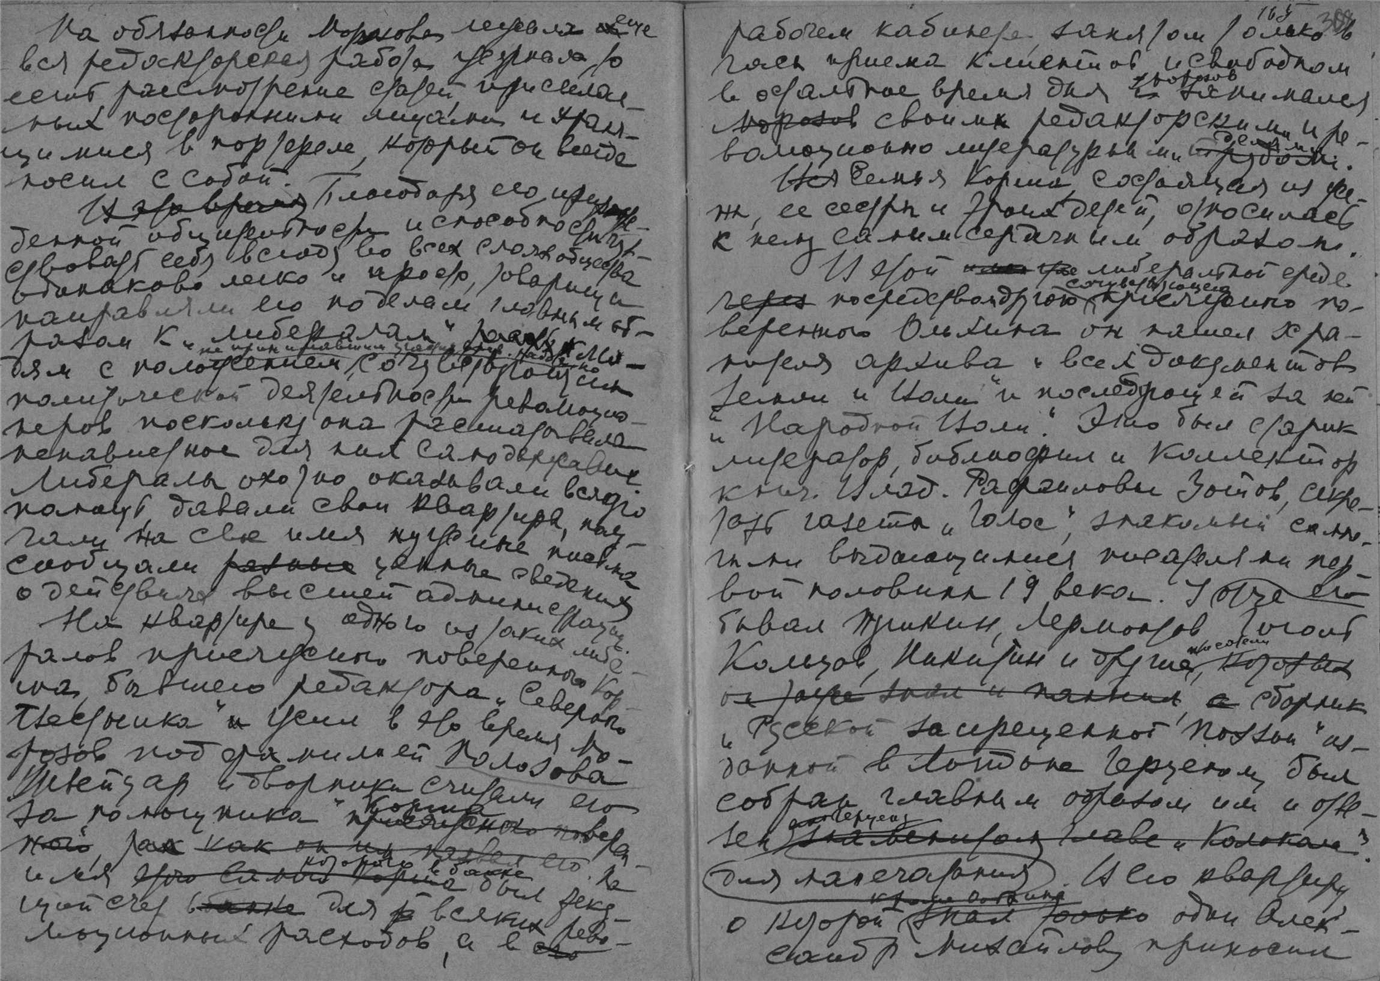 На обязанности Морозова лежала еще
вся редакторская работа журнала, то
есть, рассмотрение статей, присылае-
мых посторонними лицами и храня-
щимися в портфеле, который он всегда
носил с собой.
В это время Благодаря его прирож-
денной общительности и способности чув-
ствовать себя всюду во всех слоях общества
одинаково легко и просто, товарищи
направляли его по делам главным об-
разом к „либералам"
дям с положением, сочувствующим
политической деятельности революцио-
неров поскольку она расшатывала
ненавистное для них самодержавие
Либералы охотно оказывали всякую
помощь давали свои квартиры, полу-
чали на свое имя нужные письма
сообщали разные ценные сведения
о действиях высшей администрации.
На квартире у одного из таких либе-
ралов присяжного поверенного Кор-
ша, бывшего редактора „Северного
Вестника" и жил в это время Мо-
розов под фамилией Полозова
Швейцар и дворники считали его
за помощника Корша
присяжного поверен-
ного, так как он им назвал его. На
имя этого самого Корша был теку-
щий счет в банке для всяких рево-
люционных расходов, а в его
165
рабочем кабинете, занятом только в
часы приема клиентов и свободном
в остальное время дня Морозов занимался
Морозов своими редакторскими и ре-
волюционно литературными делами.
Вся Семья Корша, состоящая из же-
ны, ее сестры и троих детей, относилась
к нему самым сердечным образом.
В этой либеральной среде
через посредство другого сочувствующего присяжного по-
веренного Ольхина он нашел хра-
нителя архива и всех документов
„Земли и Воли" и последующей за ней
„Народной Воли". Это был старик
литератор, библиофил и коллектор
книг. Влад. Рафаилович Зотов, секре-
тарь газеты „Голос", знакомый со мно-
гими выдающимися писателями пер-
вой половины 19 века. У отца его
бывал Пушкин, Лермонтов Гоголь
Кольцов, Никитин и другие писатели, которых
он тоже знал и помнил, а сборник
„Русской запрещенной поэзии" из-
данной в Лондоне Герценом был
собран главным образом им и отве-
зен знаменитом главе „Колокола"
для напечатания. В его квартиру
о которой кроме Ольхина знал только один Алек-
сандр Михайлов, приносил